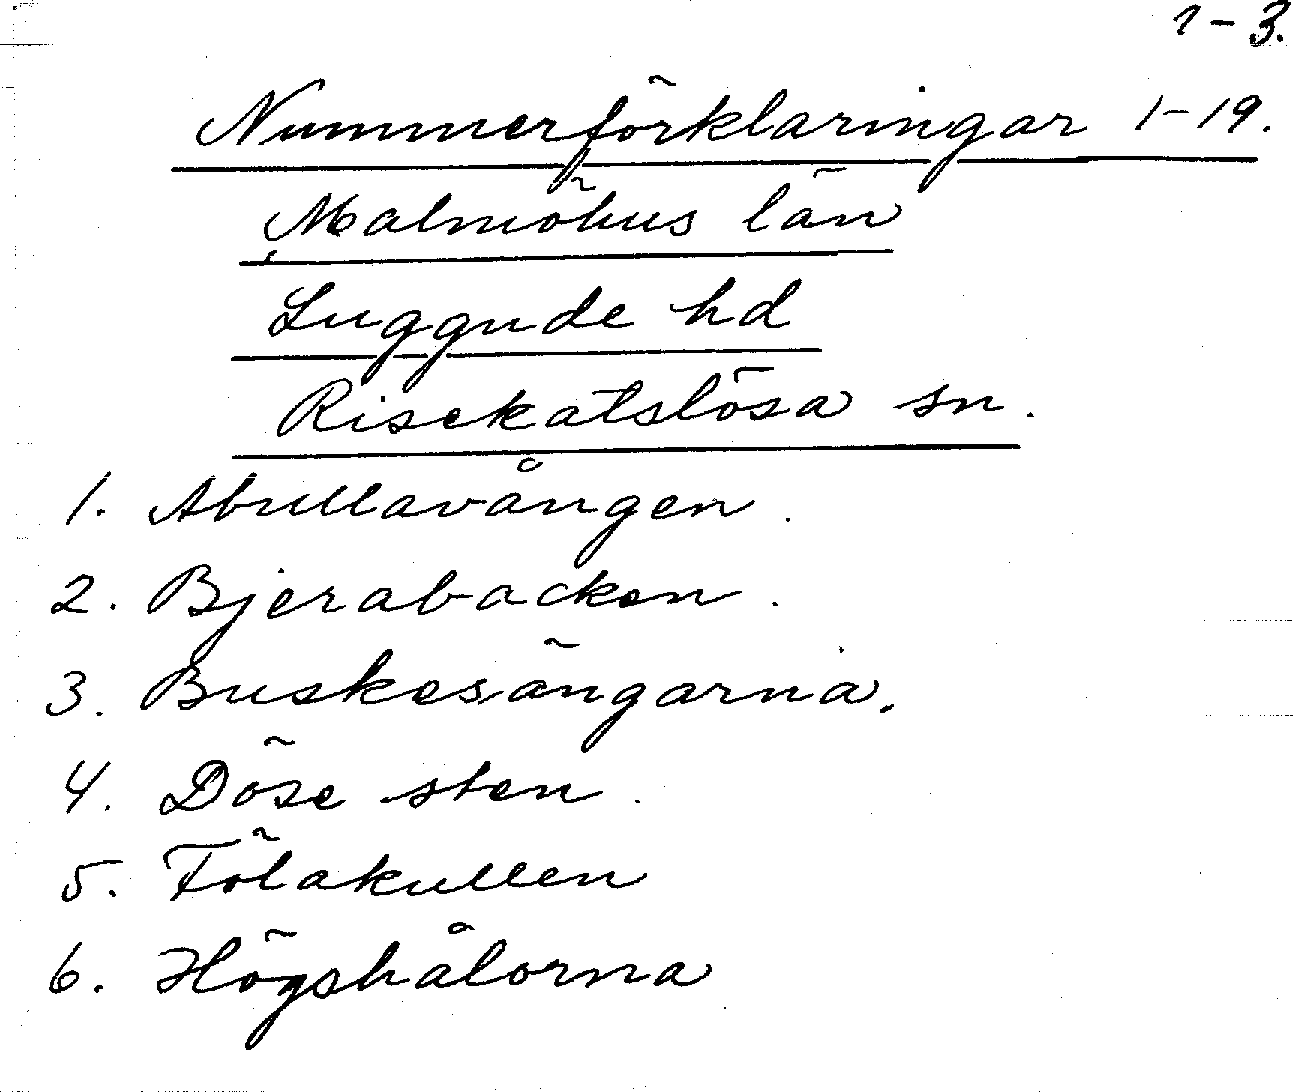 1-3.
Nummerförklaringar 1-19.
Malmöhus län
Luggude hd
Risekatslösa sn.
1. Abullavången.
2. Bjerabacken.
3. Buskesängarna.
4. Döse sten.
5. Fölakullen
6. Högshålorna